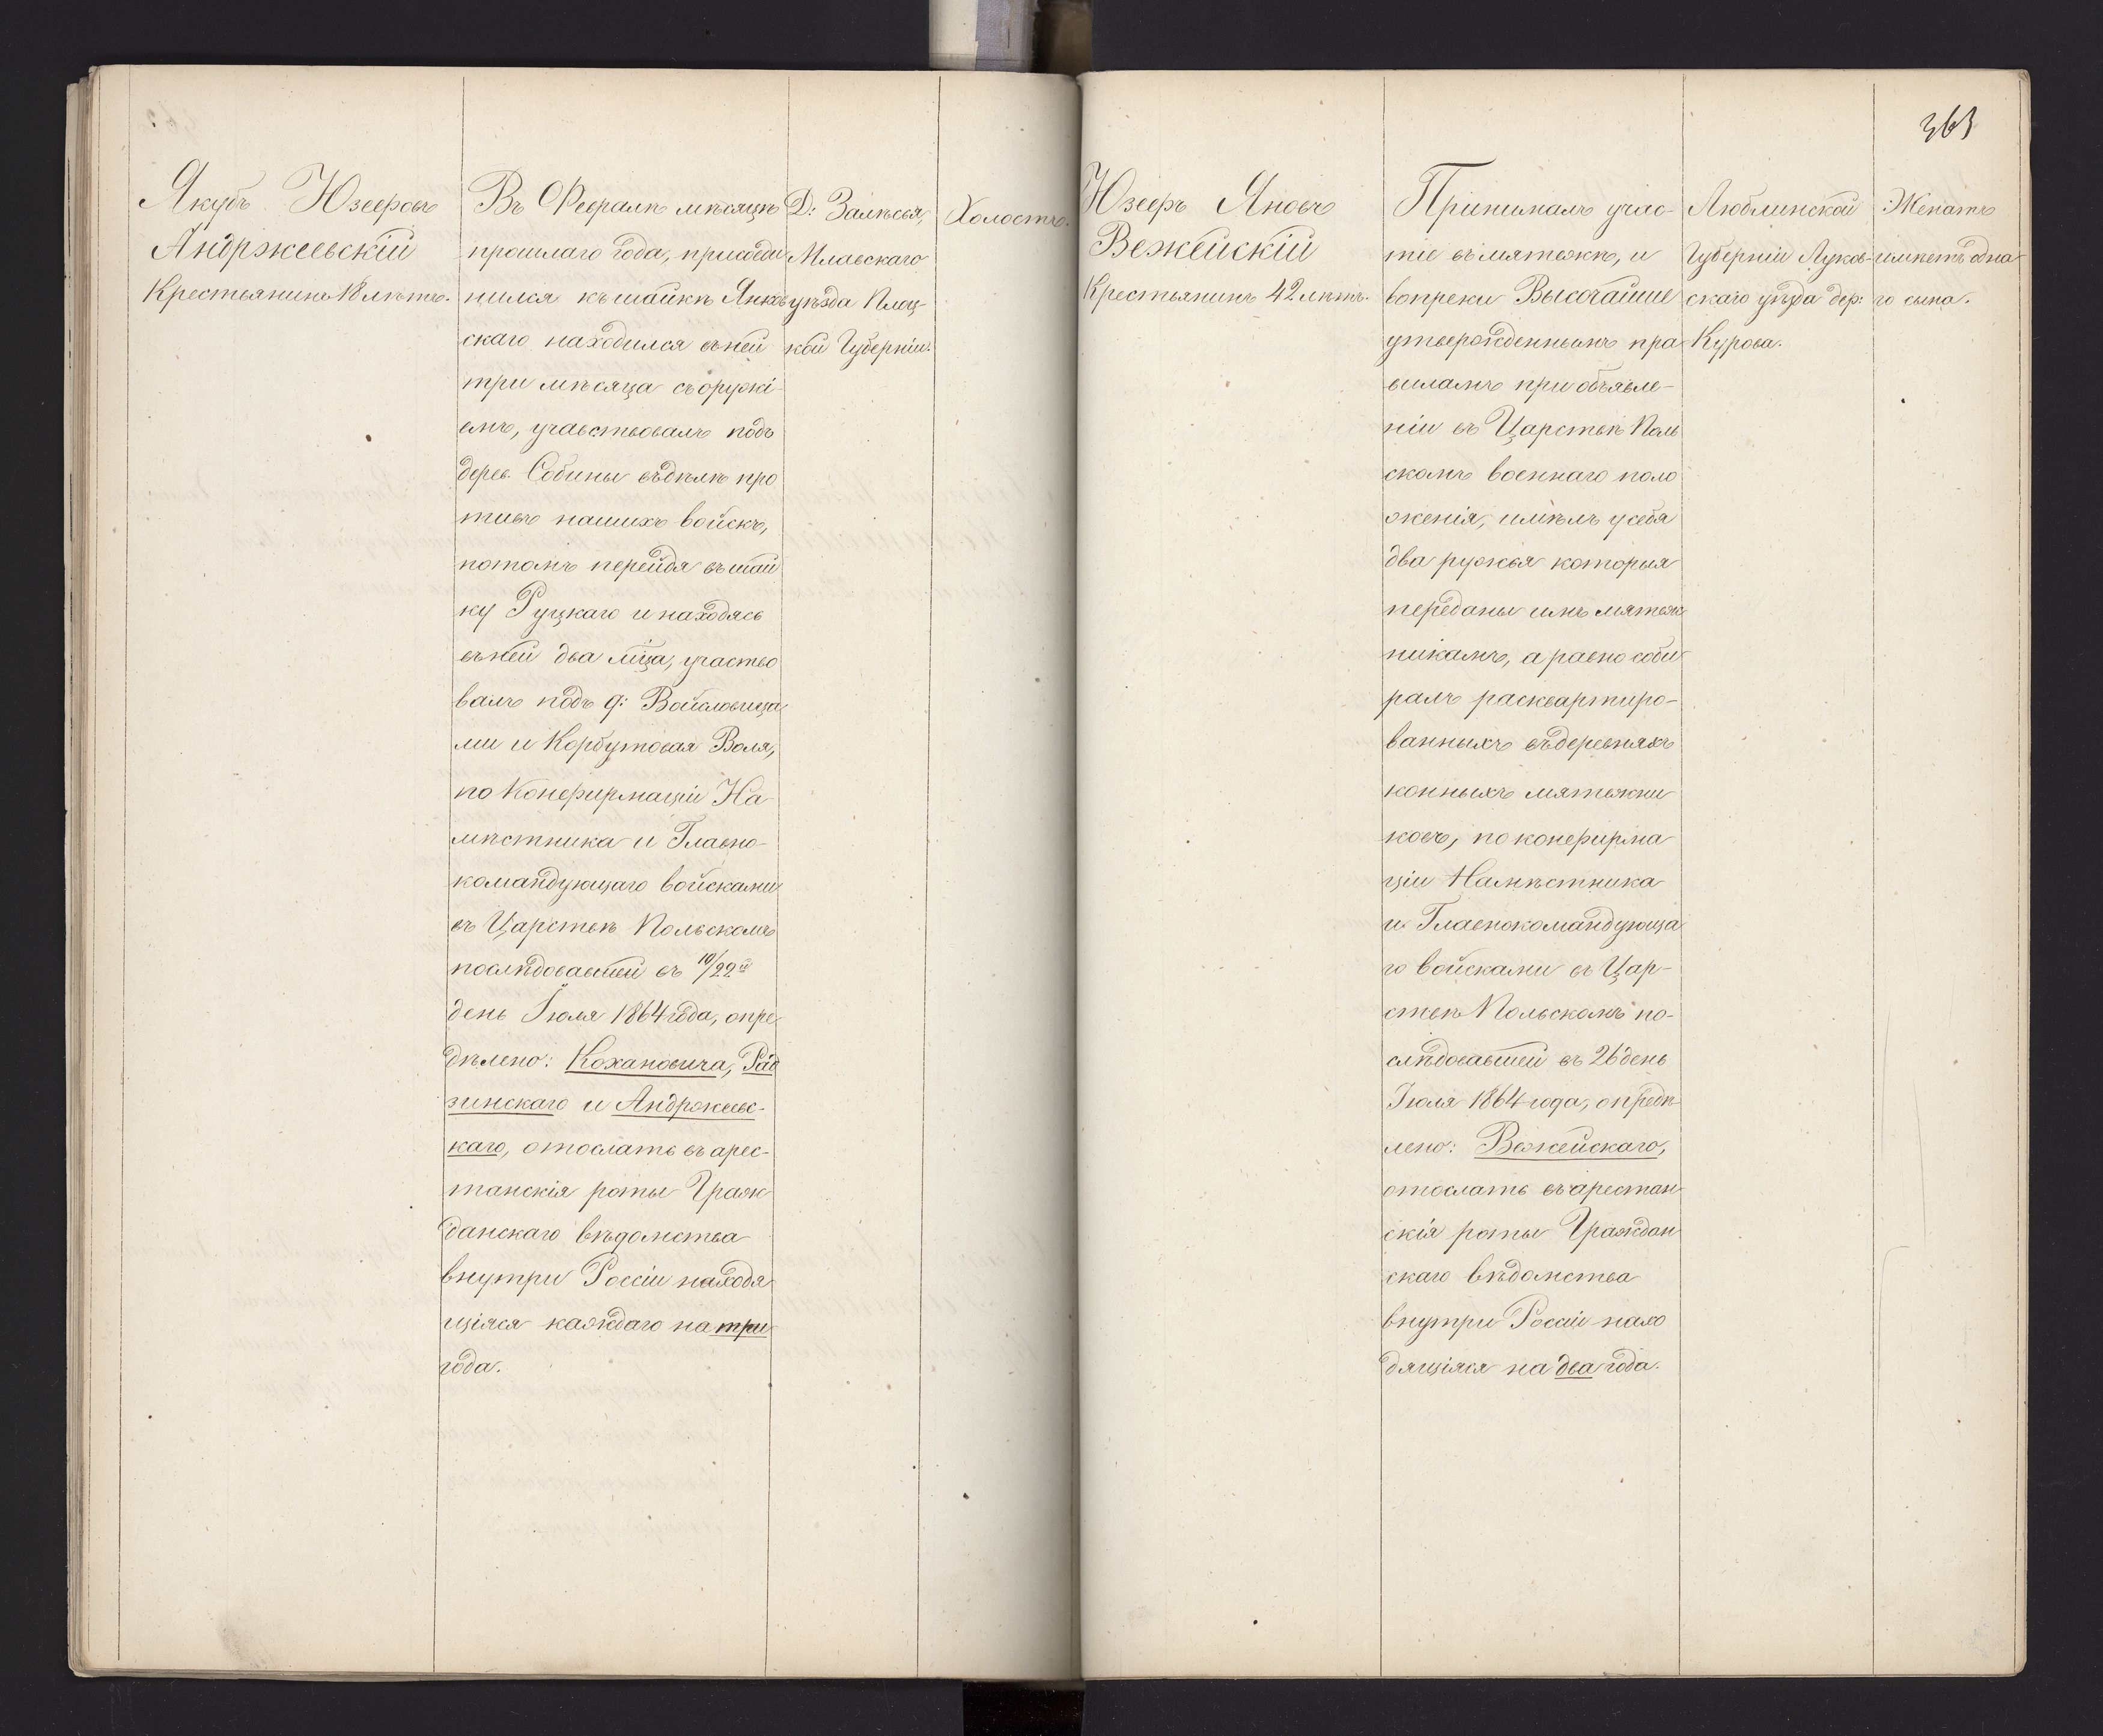 Якубъ Юзефовъ
Андржеевскій
Крестьянинъ 18 лѣтъ.
Въ Февралѣ мѣсяцѣ
прошлаго года, присоеди
нился къ шайкѣ Янков
скаго находился въ ней
три мѣсяца съ оружі
емъ, учавствовалъ подъ
дерев. Собины въ дѣлѣ про
тивъ нашихъ войскъ,
потомъ перейдя въ шай
ку Руцкаго и находясь
въ ней два мца, участво
валъ подъ д: Войсловица
ми и Корбутовая Воля,
по Конфирмаціи На
мѣстника и Главно-
командующаго войсками
въ Царствѣ Польскомъ
послѣдовавшей въ 10/22й
день Іюля 1864 года, опре
дѣлено: Кохановича, Рад
зинскаго и Андржеевс-
каго, отослать въ арес-
танскія роты Граж
данскаго вѣдомства
внутри Россіи находя
щіяся каждаго на три
года.
Д: Залѣсья,
Млавскаго
уѣзда Плоц-
кой Губерніи.
Холостъ.
363
Юзефъ Яновъ
Вежейскій
Крестьянинъ 42 лѣтъ.
Принималъ учас-
тіе въ мятежѣ, и
вопреки Высочайше
утвержденнымъ пра
виламъ при объявле-
ніи въ Царствѣ Поль
скомъ военнаго поло
женія, имѣлъ у себя
два ружья которыя
переданы имъ мятеж
никамъ, а равно соби
ралъ расквартиро-
ванныхъ въ деревняхъ
конныхъ мятежни
ковъ, по конфирма
ціи Намѣстника
и Главнокомандующа
го войсками въ Цар-
ствѣ Польскомъ по-
слѣдовавшей въ 26 день
Іюля 1864 года, опредѣ
лено: Вежейскаго,
отослать въ арестан
скія роты Граждан
скаго вѣдомства
внутри Россіи нахо
дящіяся на два года.
Люблинской
Губерніи Луков-
скаго уѣзда дер:
Курова.
Женатъ
имѣетъ одна
го сына.